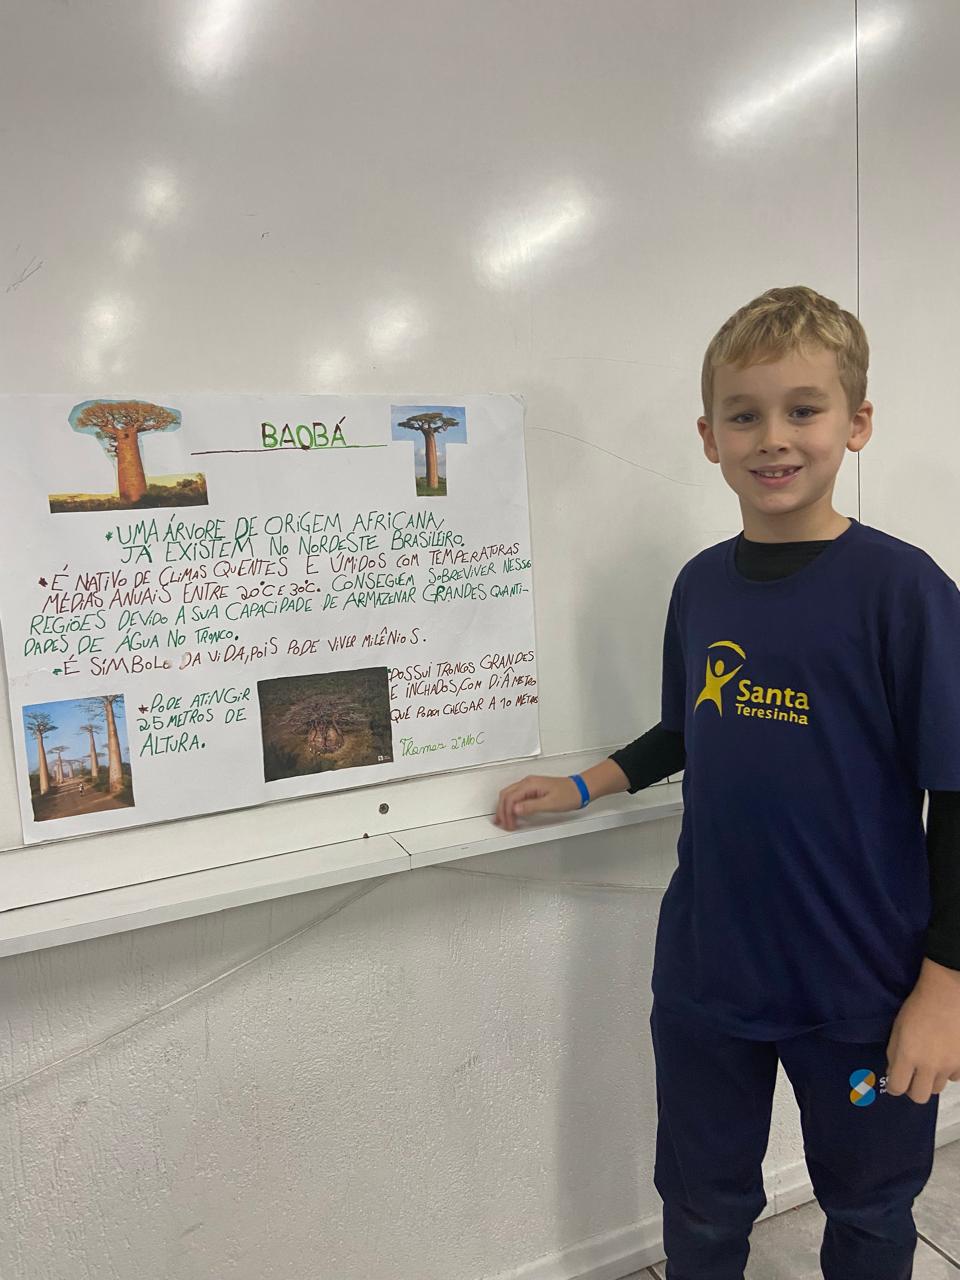 BAOBÁ
*UMA ÁRVORE DE ORIGEM AFRICANA,
JÁ EXISTEM NO NORDESTE BRASILEIRO.
*É NATIVO DE CLIMAS QUENTES E ÚMIDOS COM TEMPERATURAS
MÉDIAS ANUAIS ENTRE 20°C E 30°C. CONSEGUEM SOBREVIVER NESSAS
REGIÕES DEVIDO A SUA CAPACIDADE DE ARMAZENAR GRANDES QUANTI-
DADES DE ÁGUA NO TRONCO.
*É SÍMBOLO DA VIDA, POIS PODE VIVER MILÊNIOS.
*PODE ATINGIR
25 METROS DE
ALTURA.
*POSSUI TRONCOS GRANDES
E INCHADOS, COM DIÂMETRO
QUE PODEM CHEGAR A 10 METROS
2º ANO C
Santa
Teresinha